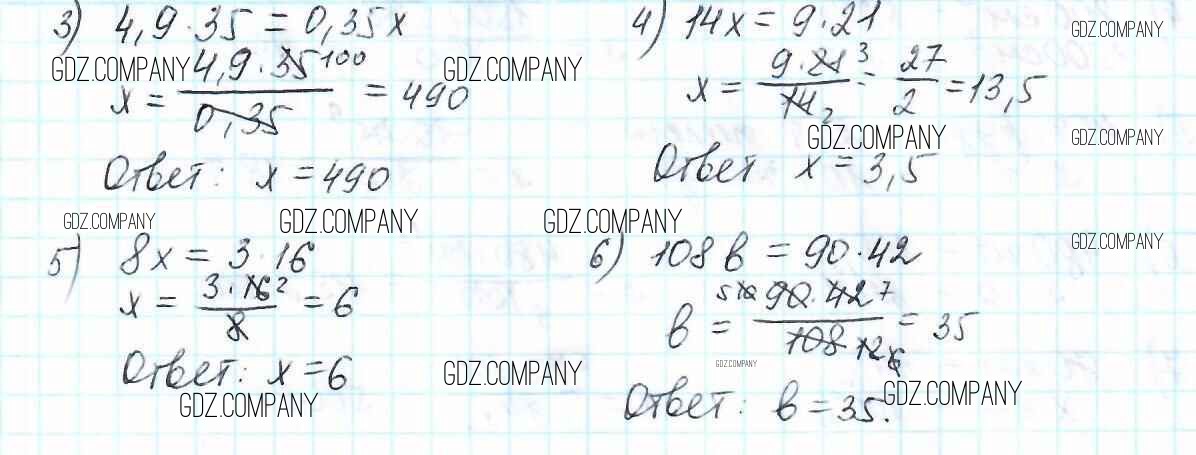 3) 4,9·35 = 0,35x
x = 4,9·35 100 / 0,35 = 490
Ответ: x = 490
4) 14x = 9·21
x = 9·21 3 / 14 2 = 27 / 2 = 13,5
Ответ x = 3,5
5) 8x = 3·16
x = 3·16 2 / 8 = 6
Ответ: x = 6
6) 108в = 90·42
в = 5 10 90·42 7 / 108 12 6 = 35
Ответ: в = 35.
GDZ.COMPANY
GDZ.COMPANY
GDZ.COMPANY
GDZ.COMPANY
GDZ.COMPANY
GDZ.COMPANY
GDZ.COMPANY
GDZ.COMPANY
GDZ.COMPANY
GDZ.COMPANY
GDZ.COMPANY
GDZ.COMPANY
GDZ.COMPANY